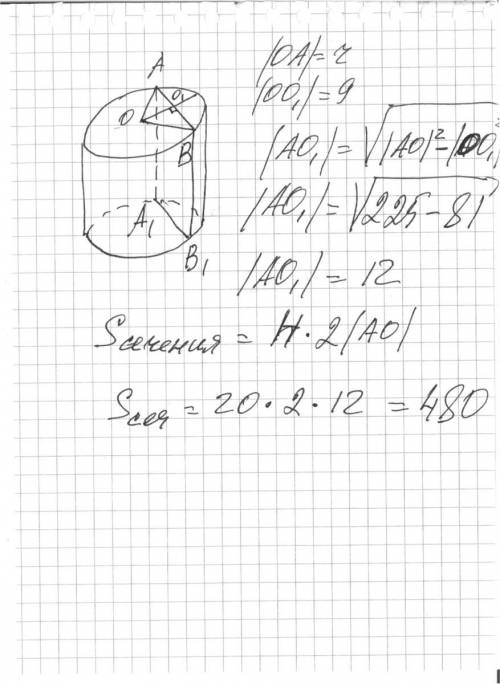 A
O
O₁
B
A₁
B₁
|OA| = r
|OO₁| = 9
|AO₁| = √|AO|² - |OO₁|²
|AO₁| = √225 - 81
|AO₁| = 12
Sсечения = H · 2|AO|
Sсеч = 20 · 2 · 12 = 480